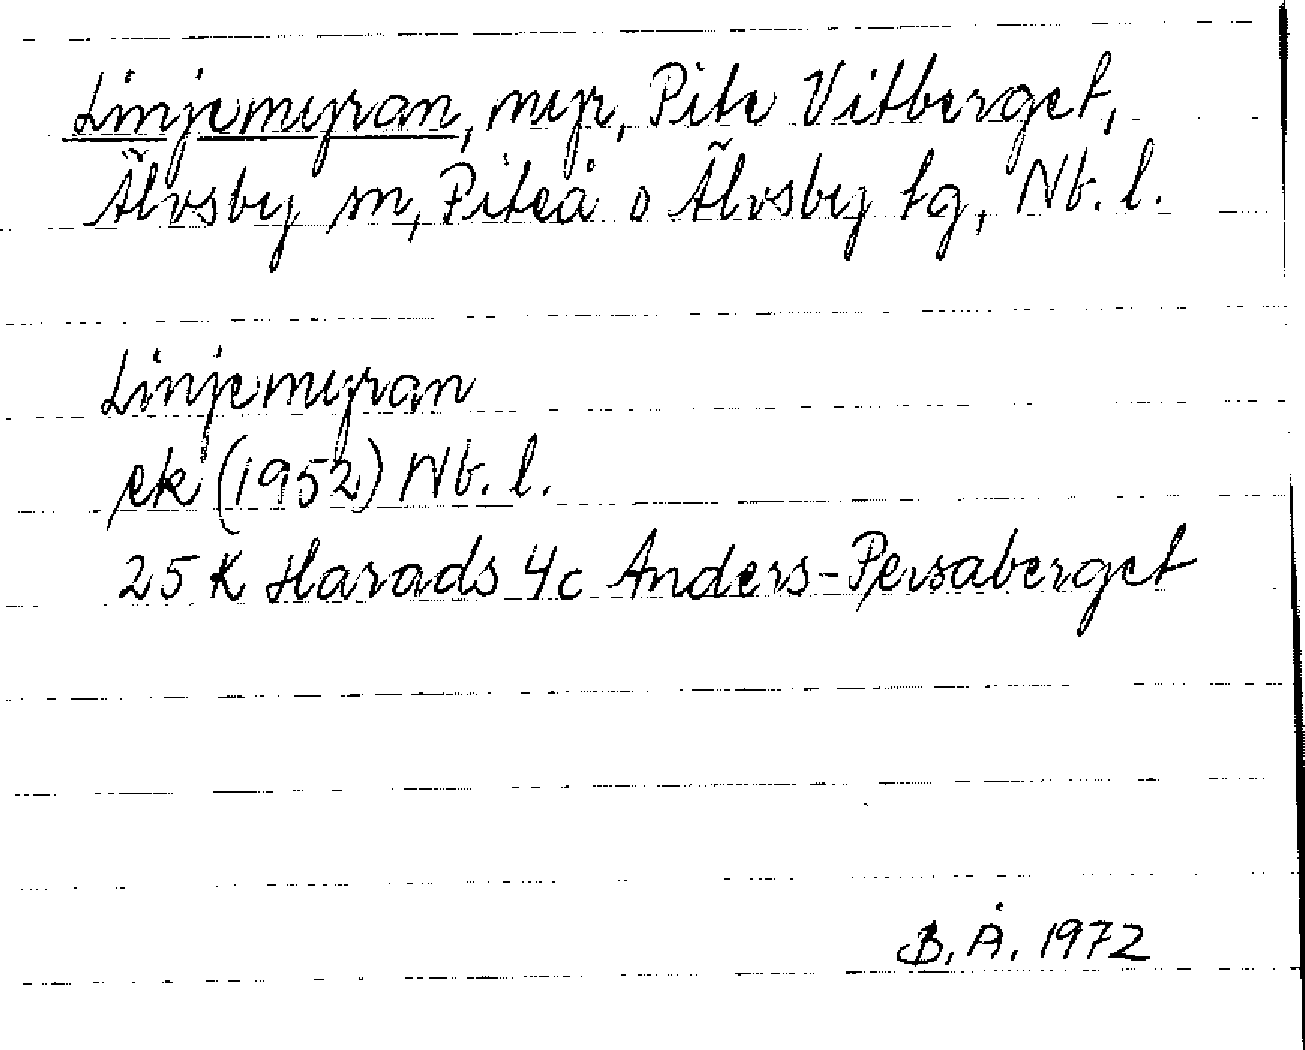 Linjemyran, myr, Pite Vitberget,
Älvsby m, Piteå o Älvsby tg, Nb. l.
Linjemyran
ek (1952) Nb. l.
25 K Harads 4c Anders-Persaberget
B. Å. 1972